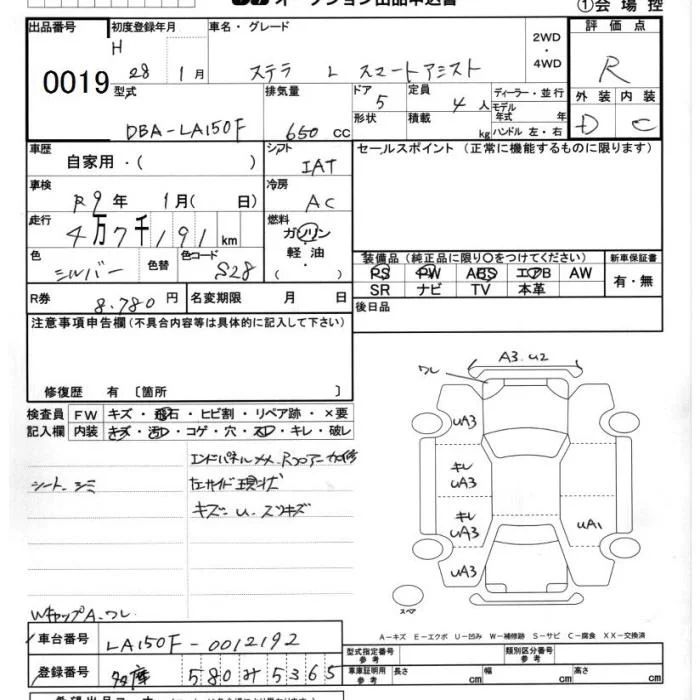 オークション出品申込書
①会場控
出品番号 初度登録年月 車名・グレード 2WD ・ 4WD 評価点
0019 H 28 1月 ステラ L スマートアシスト R
型式 排気量 ドア 5 定員 4人 ディーラー・並行 外装 内装
モデル年式 年
DBA-LA150F 650 cc 形状 積載 kg ハンドル 左・右 D C
車歴 自家用・( ) シフト IAT セールスポイント (正常に機能するものに限ります)
車検 R9年 1月( 日) 冷房 AC
走行 4万7千191 km 燃料 ガソリン・軽油・( )
色 シルバー 色替 色コード S28
装備品 (純正品に限り○をつけてください) 新車保証書
PS PW ABS エアB AW 有・無
SR ナビ TV 本革
R券 8.780円 名変期限 月 日 後日品
注意事項申告欄 (不具合内容等は具体的に記入して下さい)
修復歴 有 〔箇所 〕
検査員記入欄 FW キズ・飛石・ヒビ割・リペア跡・×要
内装 キズ・汚れ・コゲ・穴・スレ・キレ・破レ
エンドパネルメメ、Rフロアー
シート シミ
左サイド現状
キズ・u・スリキズ
WキャップA、ワレ
A3.u2
ワレ
uA3
キレ
uA3
キレ
uA3
uA1
uA3
スペア
A－キズ E－エクボ U－凹み W－補修跡 S－サビ C－腐食 XX－交換済
車台番号 LA150F-0012192
登録番号 580 み 5365
型式指定番号 参考 類別区分番号 参考
車庫証明用 参考 長さ cm 幅 cm 高さ cm